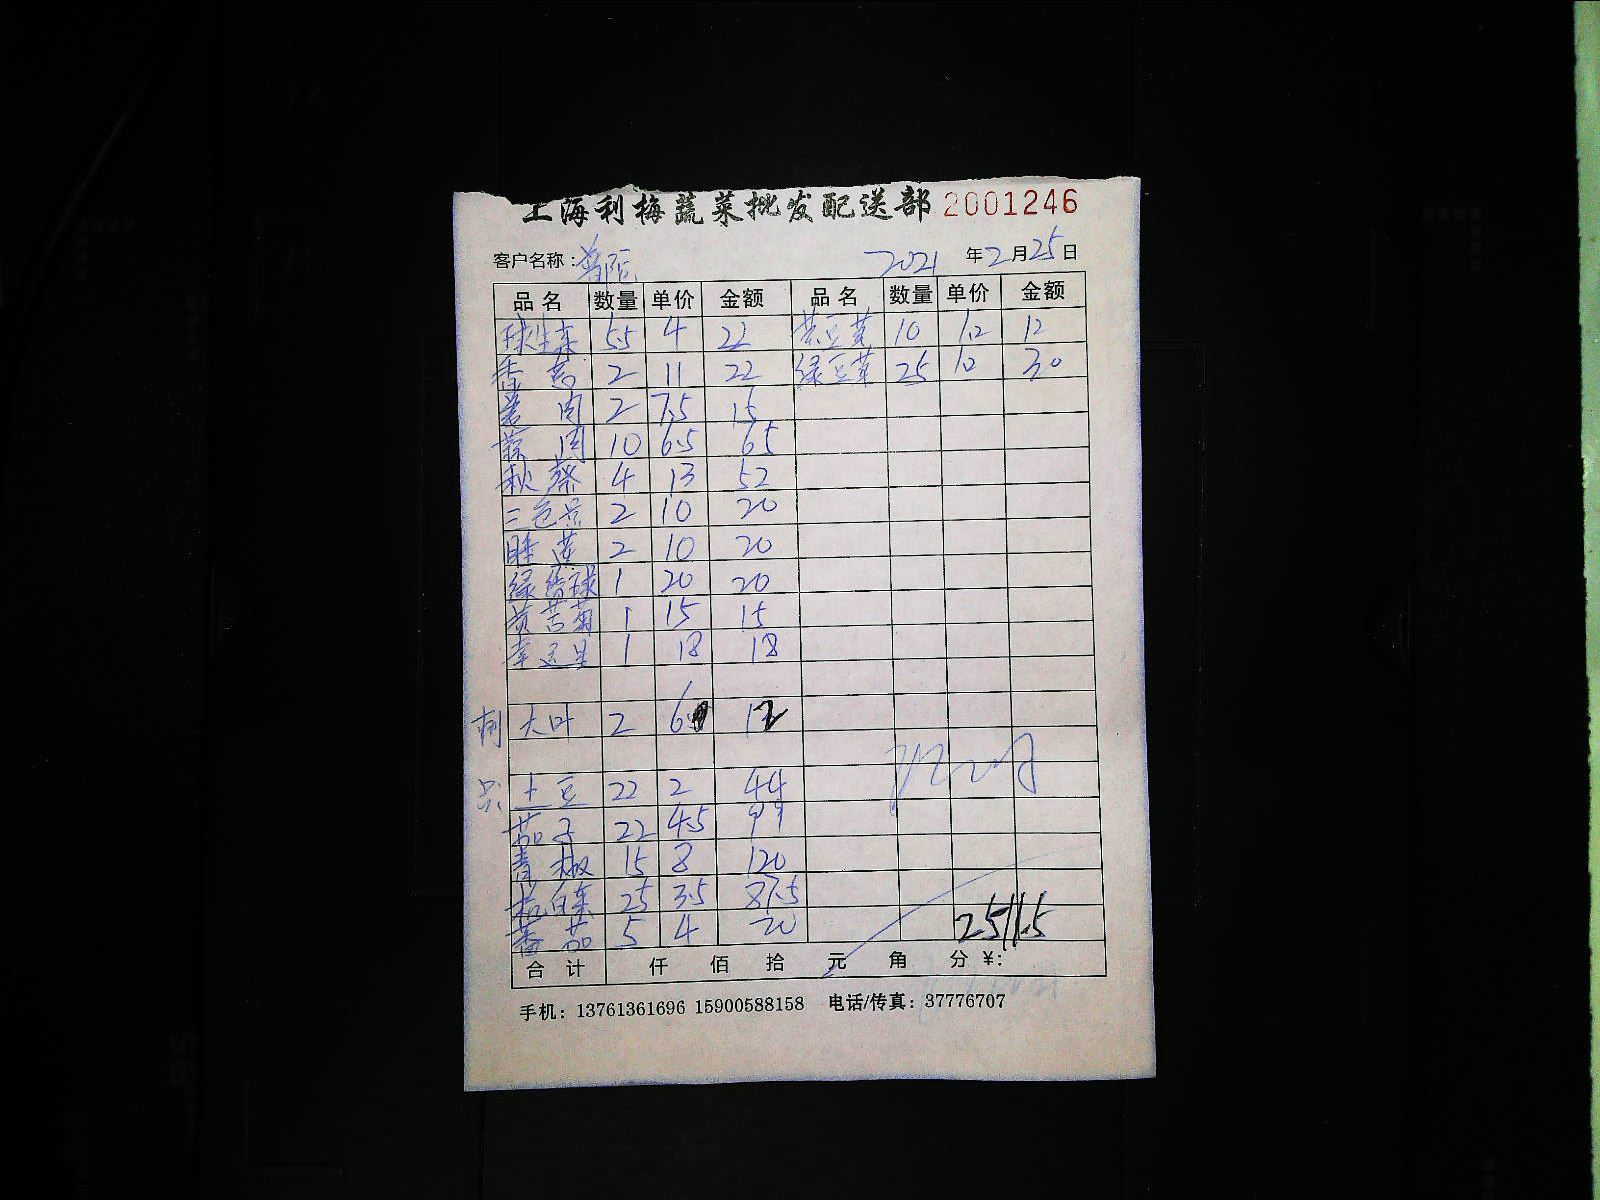 上海利梅蔬菜批发配送部 2001246
客户名称: 普陀 2021 年 2 月 25 日
品名 数量 单价 金额 品名 数量 单价 金额
球生菜 5.5 4 22 黄豆芽 10 1.2 12
香葱 2 11 22 绿豆芽 25 1.2 30
姜肉 2 7.5 15
蒜肉 10 6.5 65
秋葵 4 13 52
三色堇 2 10 20
睡莲 2 10 20
绿 球 1 20 20
黄苦菊 1 15 15
幸运星 1 18 18
大叶 2 6 12
土豆 22 2 44
茄子 22 4.5 99
青椒 15 8 120
杭白菜 25 3.5 87.5
番茄 5 4 20
2511.5
合计 仟 佰 拾 元 角 分 ¥:
手机: 13761361696 15900588158 电话/传真: 37776707